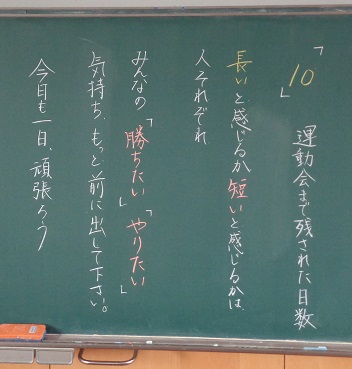 「10」
運動会まで残された日数
長いと感じるか短いと感じるかは、
人それぞれ
みんなの「勝ちたい」「やりたい」
気持ち、もっと前に出して下さい。
今日も一日、頑張ろう